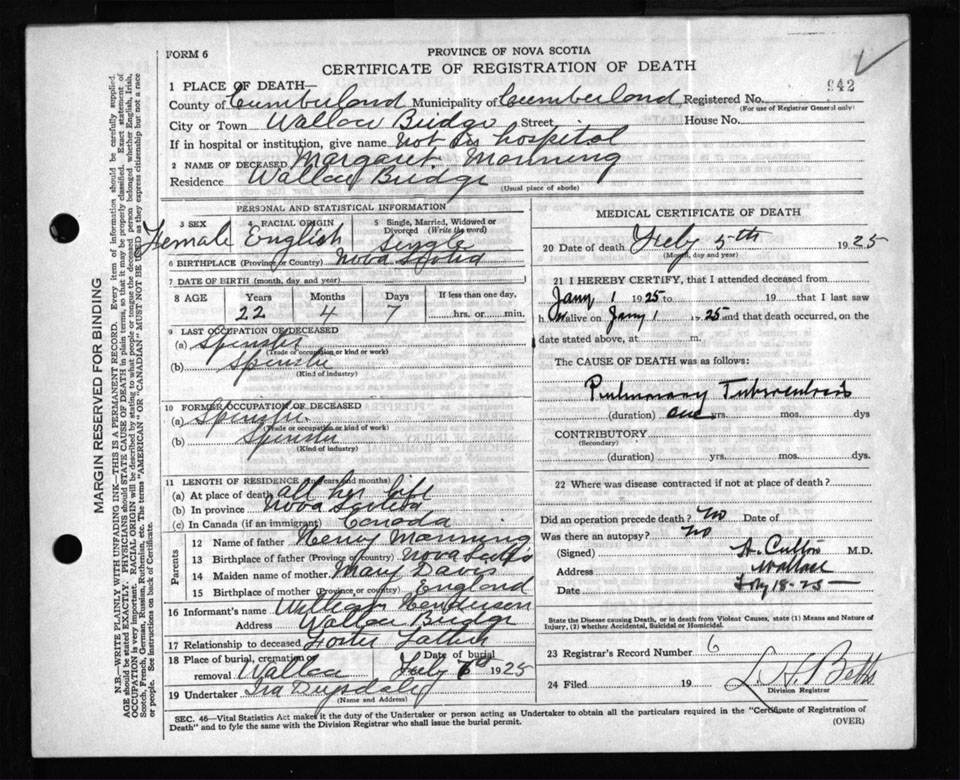 FORM 6
PROVINCE OF NOVA SCOTIA
CERTIFICATE OF REGISTRATION OF DEATH
942
1 PLACE OF DEATH—
County of Cumberland Municipality of Cumberland Registered No.
(For use of Registrar General only)
City or Town Wallace Bridge Street House No.
If in hospital or institution, give name Not in hospital
2 NAME OF DECEASED Margaret Manning
Residence Wallace Bridge
(Usual place of abode)
PERSONAL AND STATISTICAL INFORMATION
3 SEX Female
4 RACIAL ORIGIN English
5 Single, Married, Widowed or Divorced (Write the word) Single
6 BIRTHPLACE (Province or Country) Nova Scotia
7 DATE OF BIRTH (month, day and year)
8 AGE Years Months Days If less than one day,
22 4 7 hrs. or min.
9 LAST OCCUPATION OF DECEASED
(a) Spinster
(Trade or occupation or kind or work)
(b) Spinster
(Kind of industry)
10 FORMER OCCUPATION OF DECEASED
(a) Spinster
(Trade or occupation or kind of work)
(b) Spinster
(Kind of industry)
11 LENGTH OF RESIDENCE (in years and months)
(a) At place of death all her life
(b) In province Nova Scotia
(c) In Canada (if an immigrant) Canada
Parents
12 Name of father Henry Manning
13 Birthplace of father (Province or country) Nova Scotia
14 Maiden name of mother Mary Davis
15 Birthplace of mother (Province or country) England
16 Informant's name William Henderson
Address Wallace Bridge
17 Relationship to deceased Foster Father
18 Place of burial, cremation or removal Wallace Date of burial Feby 7th 1925
19 Undertaker Ira
(Name and Address)
MEDICAL CERTIFICATE OF DEATH
20 Date of death Feby 5th 1925
(Month, day and year)
21 I HEREBY CERTIFY, that I attended deceased from
Jany 1 1925 to 19 that I last saw
h alive on Jany 1 1925 and that death occurred, on the
date stated above, at m.
The CAUSE OF DEATH was as follows:
Pulmonary Tuberculosis
(duration) one yrs. mos. dys
CONTRIBUTORY
(Secondary)
(duration) yrs. mos. dys.
22 Where was disease contracted if not at place of death?
Did an operation precede death? No Date of
Was there an autopsy? No
(Signed) M.D.
Address Wallace
Date Feby 18-25
State the Disease causing Death, or in death from Violent Causes, state (1) Means and Nature of Injury, (2) whether Accidental, Suicidal or Homicidal.
23 Registrar's Record Number 6
24 Filed 19
Division Registrar
SEC. 46—Vital Statistics Act makes it the duty of the Undertaker or person acting as Undertaker to obtain all the particulars required in the "Certificate of Registration of
Death" and to fyle the same with the Division Registrar who shall issue the burial permit.
(OVER)
MARGIN RESERVED FOR BINDING
N.B.—WRITE PLAINLY WITH UNFADING INK—THIS IS A PERMANENT RECORD. Every item of information should be carefully supplied.
AGE should be stated EXACTLY. PHYSICIANS should STATE CAUSE OF DEATH in plain terms, so that it may be properly classified. Exact statement of
OCCUPATION is very important. RACIAL ORIGIN will be described by stating to what people or tongue the deceased person belonged whether English, Irish,
Scotch, French, German, Russian, Ruthenian, etc. The terms "AMERICAN" OR "CANADIAN" MUST NOT BE USED as they express citizenship but not a race
or people. See instructions on back of Certificate.